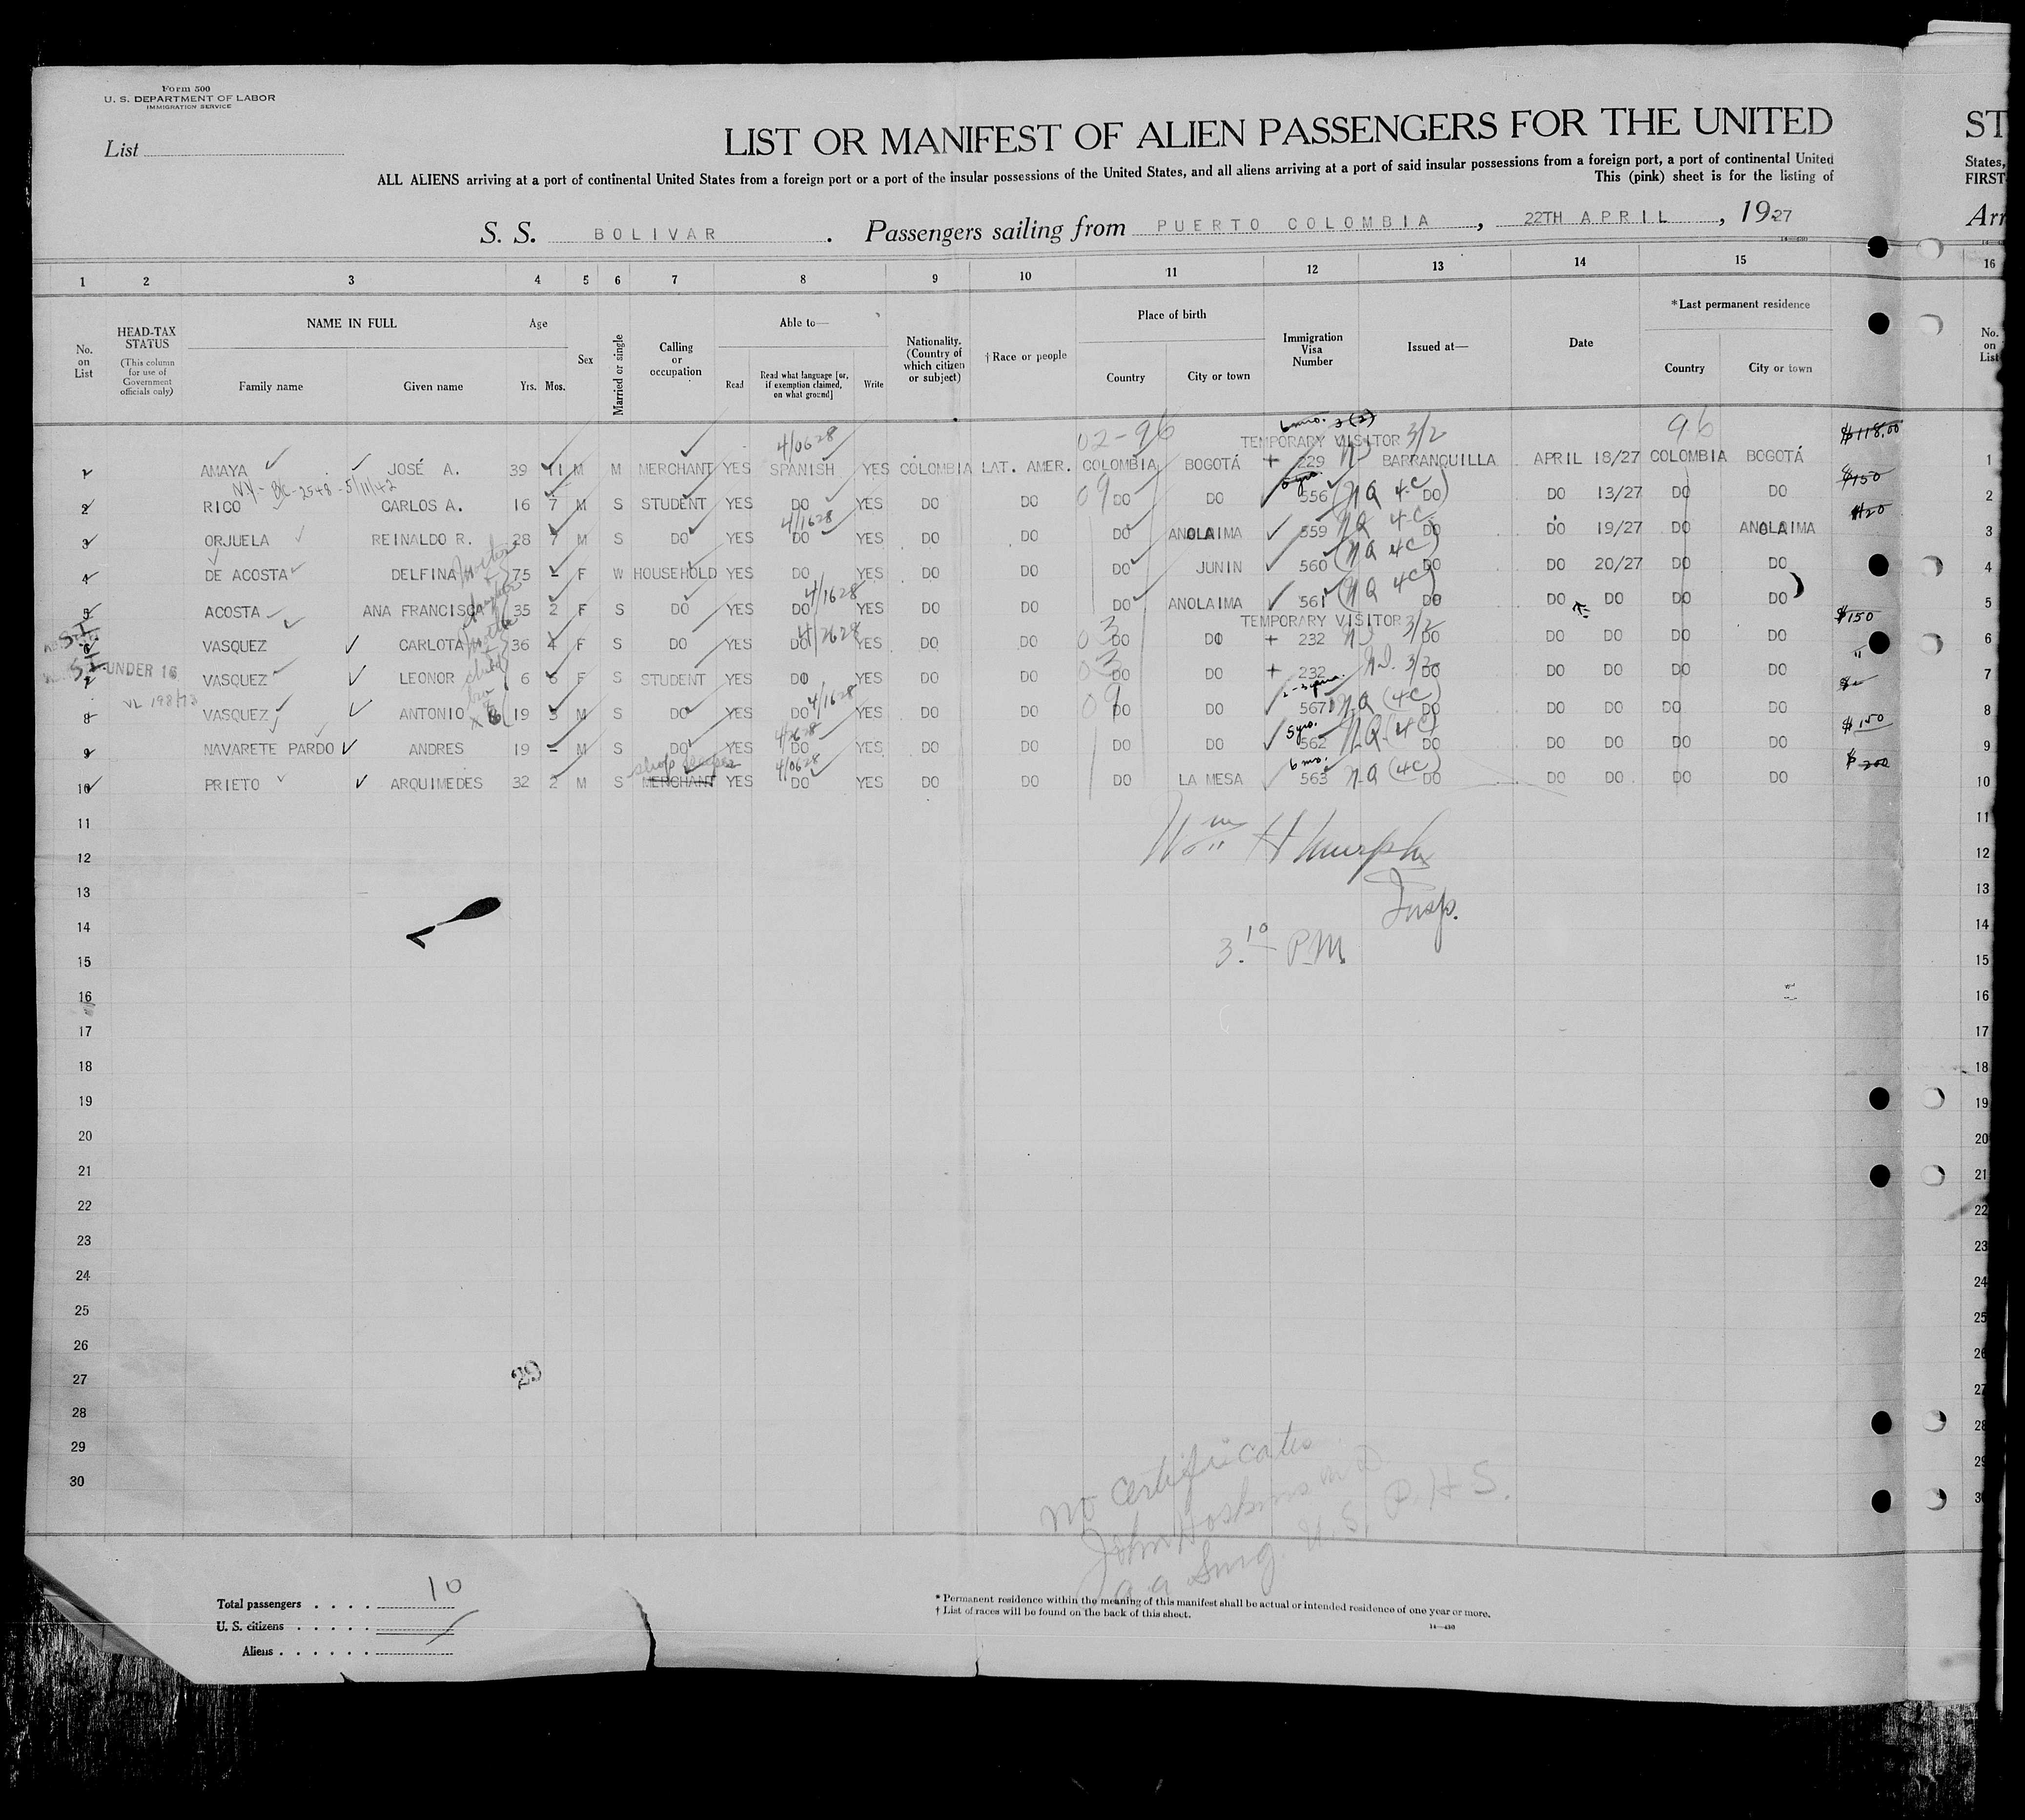 Form 500
U. S. DEPARTMENT OF LABOR
IMMIGRATION SERVICE
List
LIST OR MANIFEST OF ALIEN PASSENGERS FOR THE UNITED
ST
ALL ALIENS arriving at a port of continental United States from a foreign port or a port of the insular possessions of the United States, and all aliens arriving at a port of said insular possessions from a foreign port, a port of continental United
States,
This (pink) sheet is for the listing of
FIRST-
S. S. BOLIVAR. Passengers sailing from PUERTO COLOMBIA, 22TH APRIL, 1927
Arr
1 2 3 4 5 6 7 8 9 10 11 12 13 14 15 16
No. on List
HEAD-TAX STATUS
(This column for use of Government officials only)
NAME IN FULL
Family name Given name
Age
Yrs. Mos.
Sex
Married or single
Calling or occupation
Able to—
Read Read what language [or, if exemption claimed, on what ground] Write
Nationality. (Country of which citizen or subject)
† Race or people
Place of birth
Country City or town
Immigration Visa Number
Issued at—
Date
*Last permanent residence
Country City or town
No. on List
4/0628 02-96 6 mo. 3(2) 96
TEMPORARY VISITOR 3/2 $118.00
1 AMAYA JOSÉ A. 39 11 M M MERCHANT YES SPANISH YES COLOMBIA LAT. AMER. COLOMBIA BOGOTÁ + 229 BARRANQUILLA APRIL 18/27 COLOMBIA BOGOTÁ 1
NY- 8/c-2548-5/11/42 $150
2 RICO CARLOS A. 16 7 M S STUDENT YES DO YES DO DO 09 DO DO 556 (NQ 4-C) DO DO 13/27 DO DO 2
4/1628 $20
3 ORJUELA REINALDO R. 28 7 M S DO YES DO YES DO DO DO ANOLAIMA 559 NQ 4-C DO DO 19/27 DO ANOLAIMA 3
4 DE ACOSTA DELFINA mother 75 - F W HOUSEHOLD YES DO YES DO DO DO JUNIN 560 (NQ 4C) DO DO 20/27 DO DO 4
4/1628
5 ACOSTA ANA FRANCISCA daughter 35 2 F S DO YES DO YES DO DO DO ANOLAIMA 561 (NQ 4C) DO DO DO DO DO 5
TEMPORARY VISITOR 3/2 $150
S.I.
6 VASQUEZ CARLOTA mother 36 4 F S DO YES DO 4/2628 YES DO DO 03 DO DO + 232 DO DO DO DO DO 6
S.I. UNDER 16
7 VASQUEZ LEONOR child 6 6 F S STUDENT YES DO YES DO DO 03 DO DO + 232 3/2 DO DO DO DO DO " 7
VL 198/73 4/1628
8 VASQUEZ ANTONIO 19 3 M S DO YES DO YES DO DO 09 DO DO 567 NQ (4C) DO DO DO DO DO 8
4/2628 $150
9 NAVARETE PARDO ANDRES 19 - M S DO YES DO YES DO DO DO DO 562 NQ (4C) DO DO DO DO DO 9
shop keeper 4/0628 6 mo. $200
10 PRIETO ARQUIMEDES 32 2 M S MERCHANT YES DO YES DO DO DO LA MESA 563 NQ (4C) DO DO DO DO DO 10
11 11
12 Wm H Murphy 12
13 Insp. 13
14 14
15 3.10 PM 15
16 16
17 17
18 18
19 19
20 20
21 21
22 22
23 23
24 24
25 25
26 26
27 29 27
28 28
29 29
30 30
no certificates
John Hoskins M.D.
a a Surg. U.S.P.H.S.
Total passengers . . . . 10
U. S. citizens . . . . .
Aliens . . . . . .
* Permanent residence within the meaning of this manifest shall be actual or intended residence of one year or more.
† List of races will be found on the back of this sheet.
14—430